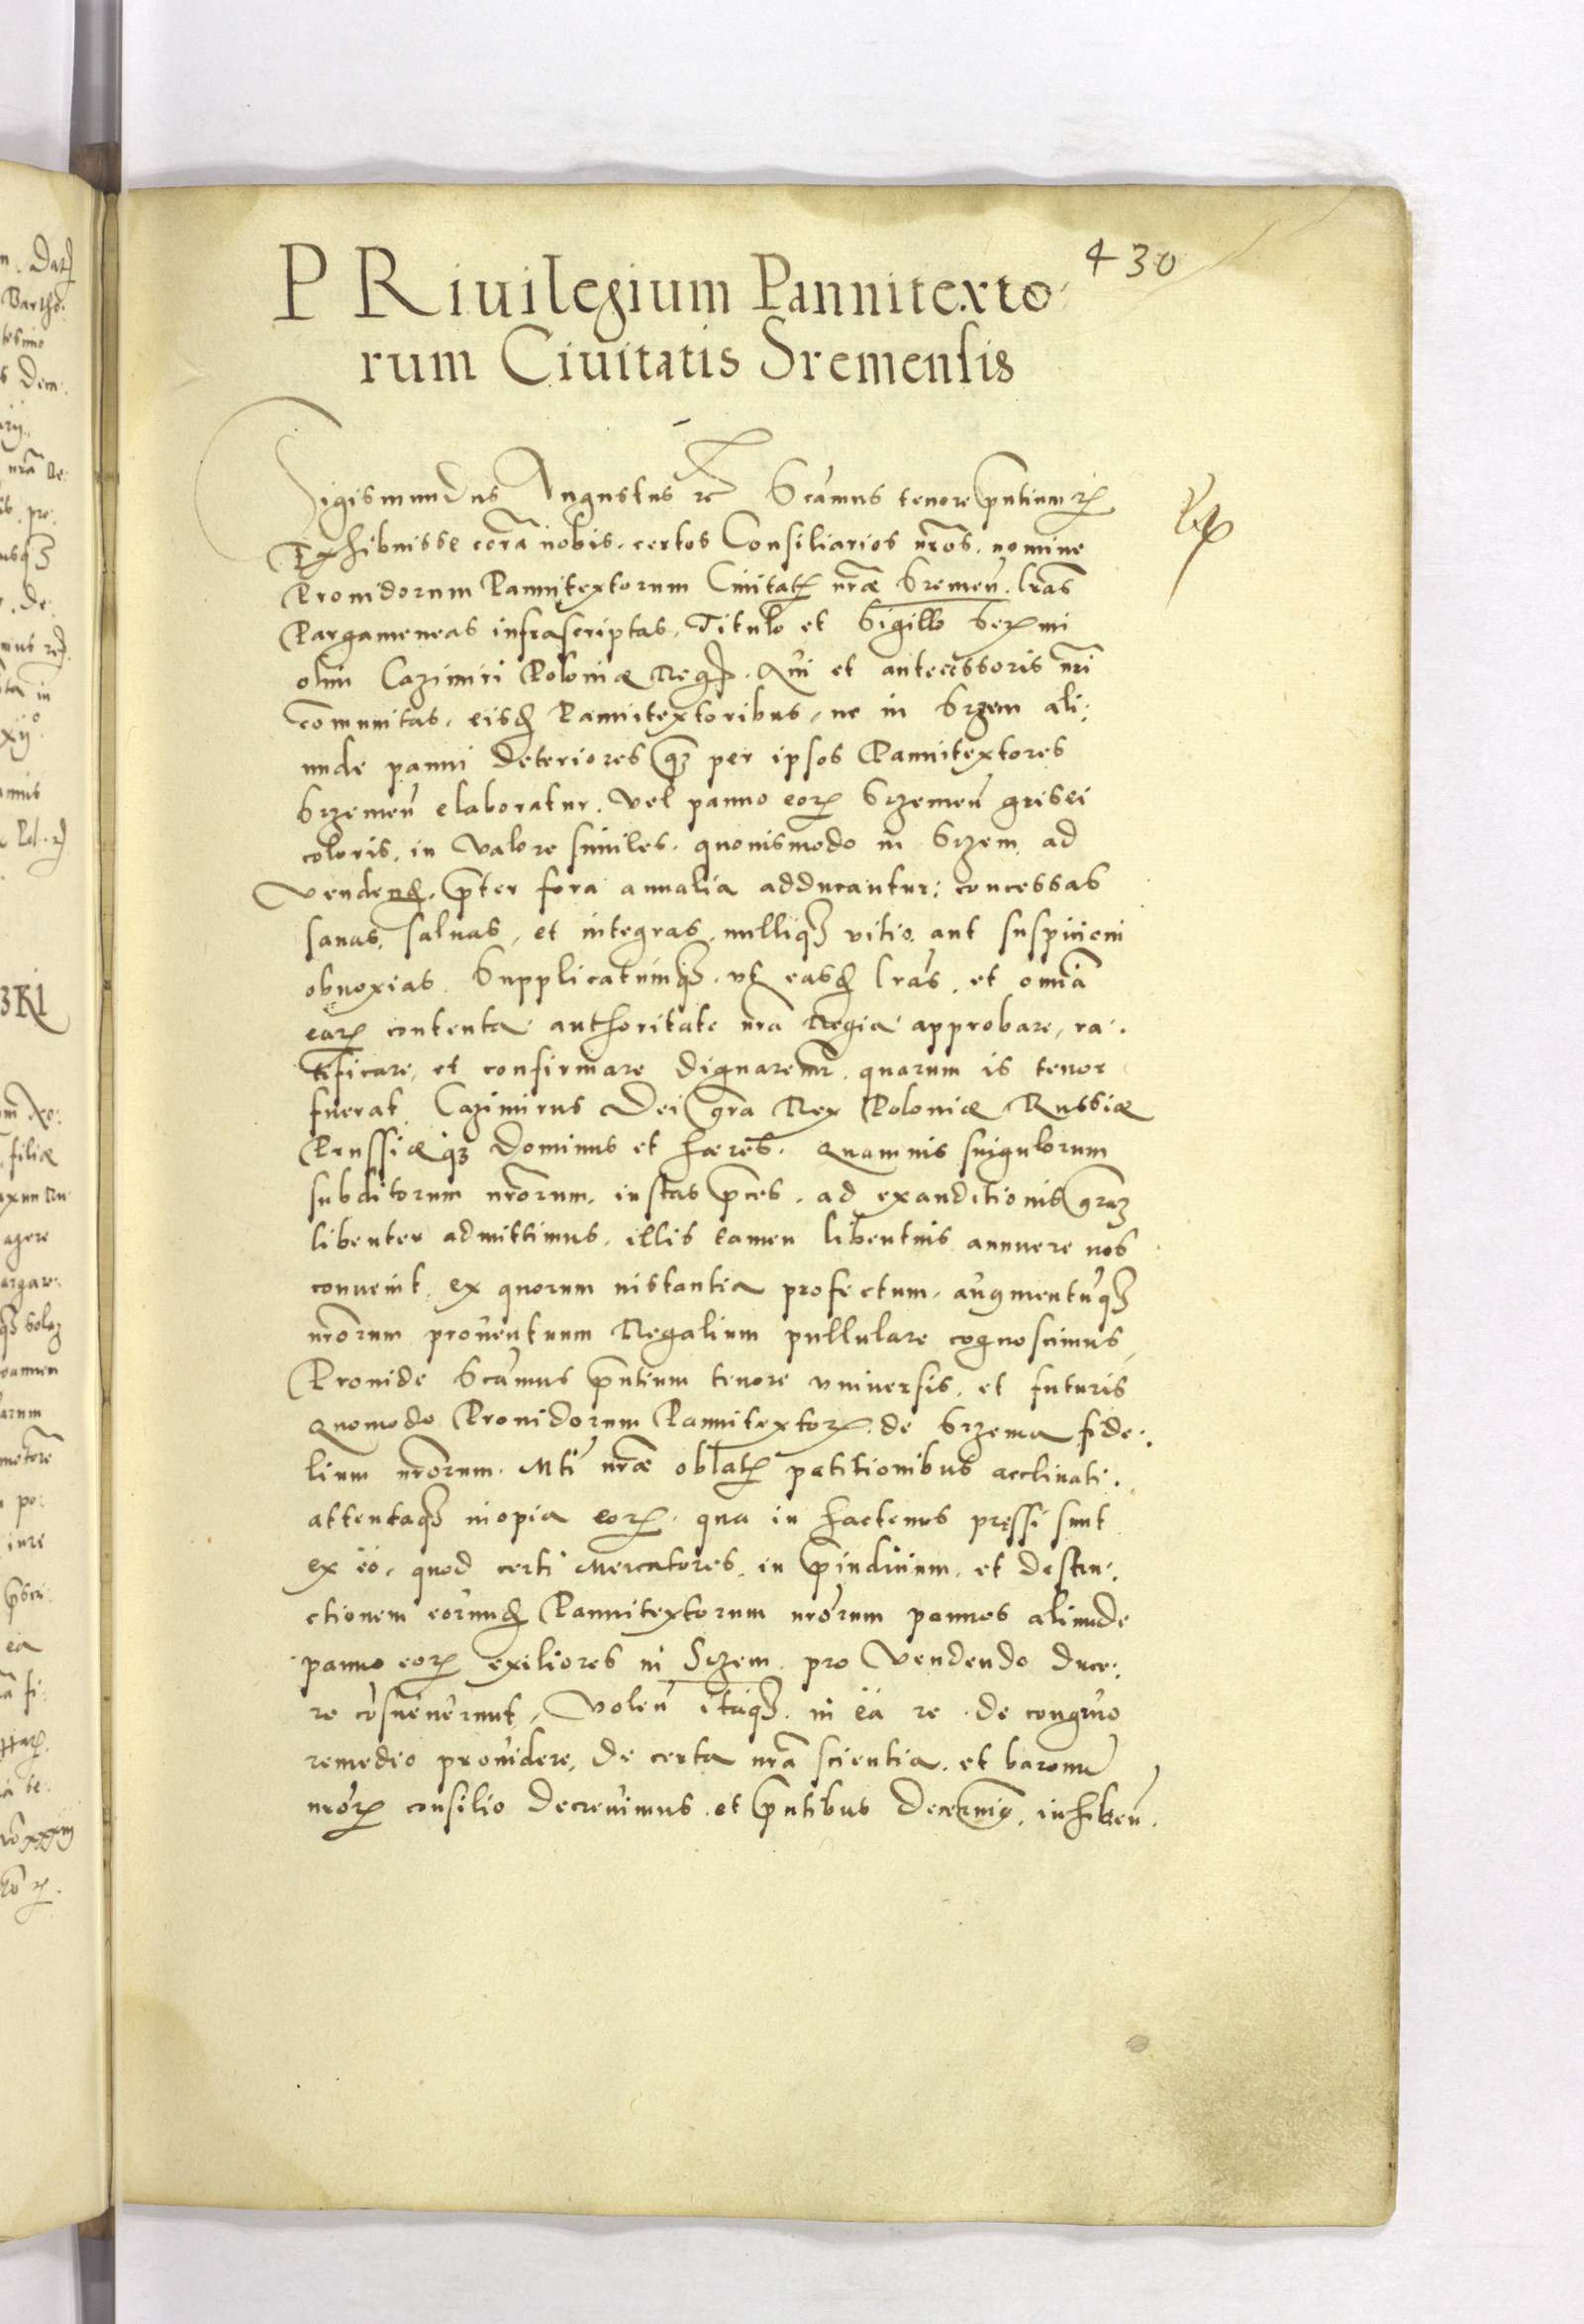 430
PRiuilegium Pannitexto
rum Ciuitatis Sremensis
Sigismundus Augustus rc Scamus tenore pntium rc
Exhibuisse corã nobis. certos Consiliarios nros. nomine
Prouidorum Pannitextorum Ciuitatis nræ Sremeñ. lras
Pargameneas infrascriptas, Titulo et Sigillo Sermi
olim Cazimiri Poloniæ Regis. Aui et antecessoris nri
comunitas, eisd Pannitextoribus, ne in Srzem ali:
unde panni deteriores qz per ipsos Pannitextores
Srzemeñ elaboratur. vel panno eorz Srzemeñ grisei
coloris, in valore similes. quouismodo in Srzem ad
vendend. pter fora annalia adducantur: concessas
sanas, saluas, et integras, nulliqz vitio aut suspicioni
obnoxias. Supplicatumqz. vt easd lras, et omia
earz contenta authoritate nra Regia approbare, ra.
tificare, et confirmare dignaremr. quarum is tenor
fuerat. Cazimirus Dei gra Rex Poloniæ Russiæ
Prussiæqz Dominus et hæres. Quamuis singulorum
subditorum nrorum. iustas pces. ad exauditionis graz
libenter admittimus. illis tamen libentius annuere nos
conuenit, ex quorum instantia profectum, augmentuqz
nrorum prouentuum Regalium pullulare cognoscimus,
Prouide Scamus pntium tenore vniuersis. et futuris
Quomodo Prouidorum Pannitextorz. de Srzema fide:
lium nrorum. Mti nræ oblatis petitionibus acclinati.
attentaqz inopia eorz. qua in hactenus pressi sunt
ex eo, quod certi Mercatores. in piudicium. et destru:
ctionem eorund Pannitextorum nrorum pannos aliunde
panno eorz exiliores in Srzem pro vendendo duce:
re cosueuerunt, Voleñ itaqz. in ea re de congruo
remedio prouidere, de certa nra scientia. et baronu
nrorz consilio decreuimus. et pntibus decernimus, inhibeñ.